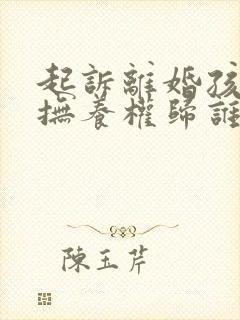 起訴離婚孩
撫養權歸誰
陳玉芹